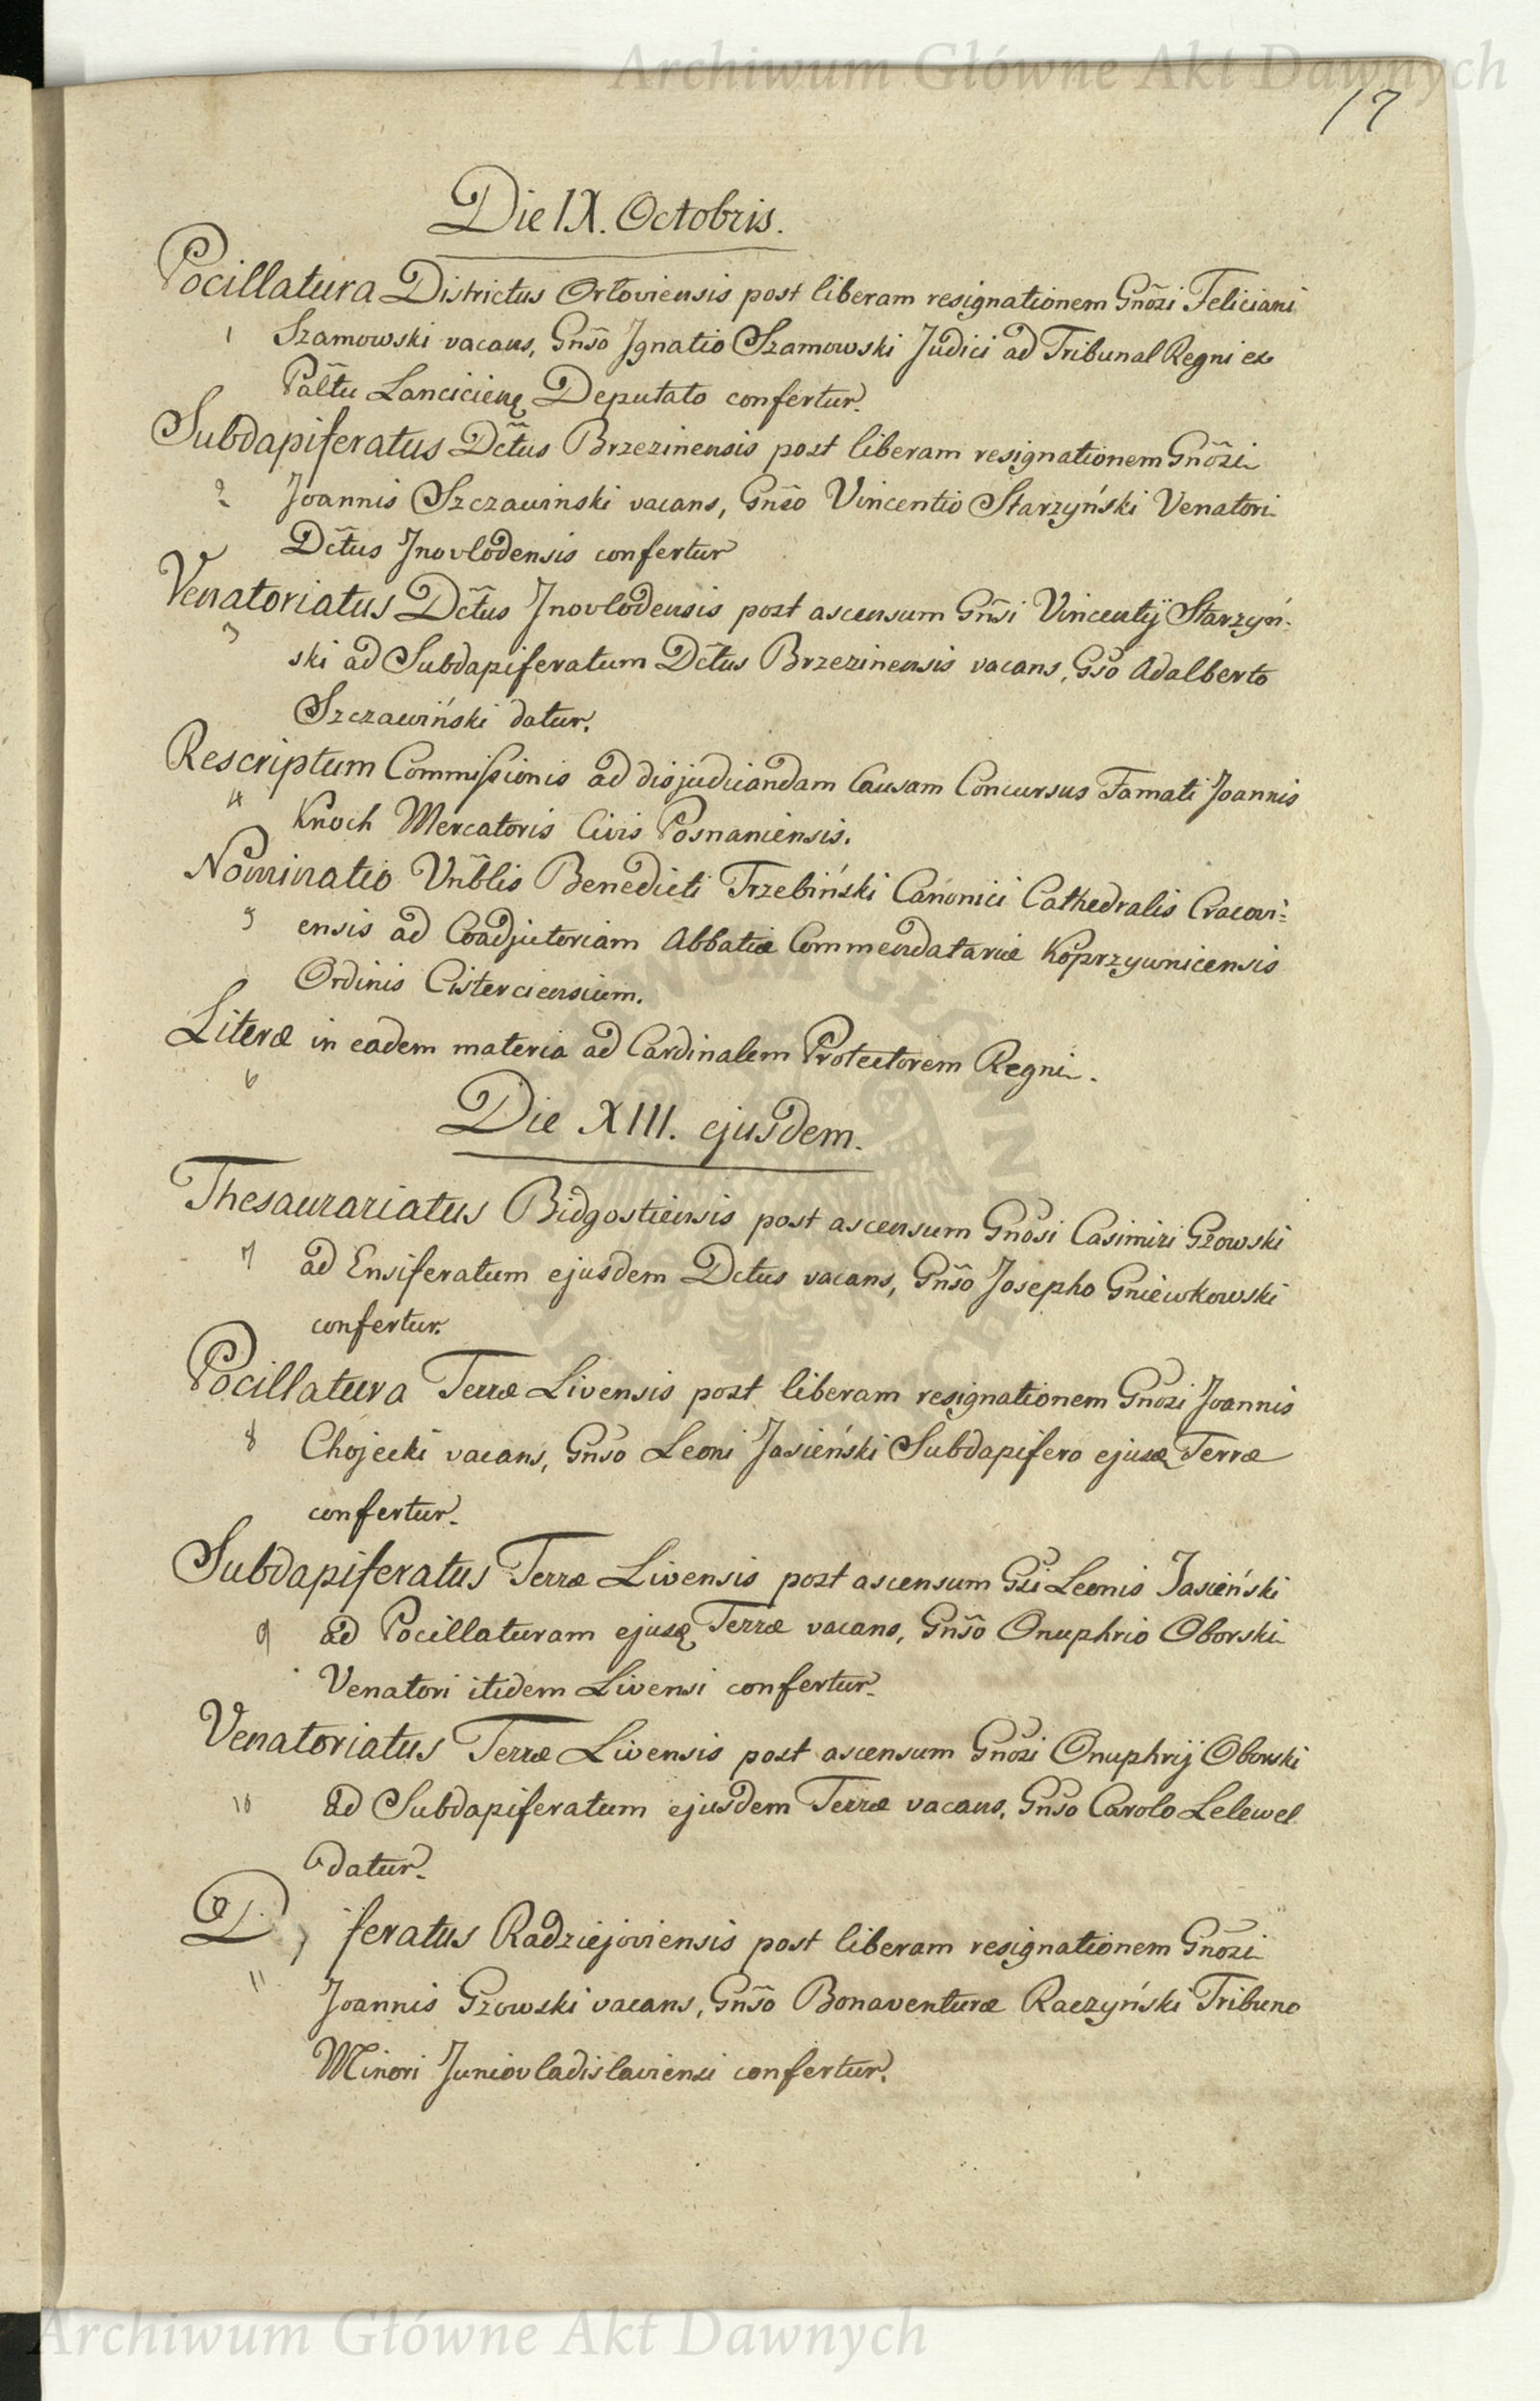 Archiwum Główne Akt Dawnych
17
Die IX. Octobris.
Pocillatura Districtus Orłoviensis post liberam resignationem Gñosi Feliciani
1 Szamowski vacans, Gñso Jgnatio Szamowski Judici ad Tribunal Regni ex
Pałtu Lancicieñ Deputato confertur.
Subdapiferatus Dc̃tus Brzezinensis post liberam resignationem Gñosi
2 Joannis Szczawinski vacans, Gñso Vincentio Starzyński Venatori
Dc̃tus Jnovlodensis confertur
Venatoriatus Dc̃tus Jnovlodensis post ascensum Gñsi Vincentij Starzyń-
3 ski ad Subdapiferatum Dc̃tus Brzezinensis vacans, Gso Adalberto
Szczawiński datur.
Rescriptum Commissionis ad disjudicandam Causam Concursus Famati Joannis
4 Knoch Mercatoris Civis Posnaniensis.
Nominatio Vñblis Benedicti Trzebiński Canonici Cathedralis Cracovi=
5 ensis ad Coadjutoriam Abbatiæ Commendatariæ Koprzywnicensis
Ordinis Cisterciensium.
Literæ in eadem materia ad Cardinalem Protectorem Regni.
6
Die XIII. ejusdem.
Thesaurariatus Bidgostiensis post ascensum Gñosi Casimiri Gzowski
7 ad Ensiferatum ejusdem Dctus vacans, Gñso Josepho Gniewkowski
confertur.
Pocillatura Terræ Livensis post liberam resignationem Gñosi Joannis
8 Chojecki vacans, Gñso Leoni Jasieński Subdapifero ejusđ Terræ
confertur.
Subdapiferatus Terræ Livensis post ascensum Gsi Leonis Jasieński
9 ad Pocillaturam ejusđ Terræ vacans, Gñso Onuphrio Oborski
Venatori itidem Livensi confertur.
Venatoriatus Terræ Livensis post ascensum Gñosi Onuphrij Oborski
10 ad Subdapiferatum ejusdem Terræ vacans, Gñso Carolo Lelewel
datur.
feratus Radziejoviensis post liberam resignationem Gñosi
11 Joannis Gzowski vacans, Gñso Bonaventuræ Raczyński Tribuno
Minori Juniovladislaviensi confertur.
Archiwum Główne Akt Dawnych